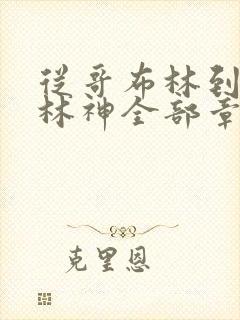 从哥布林到
林神全部章
克里恩